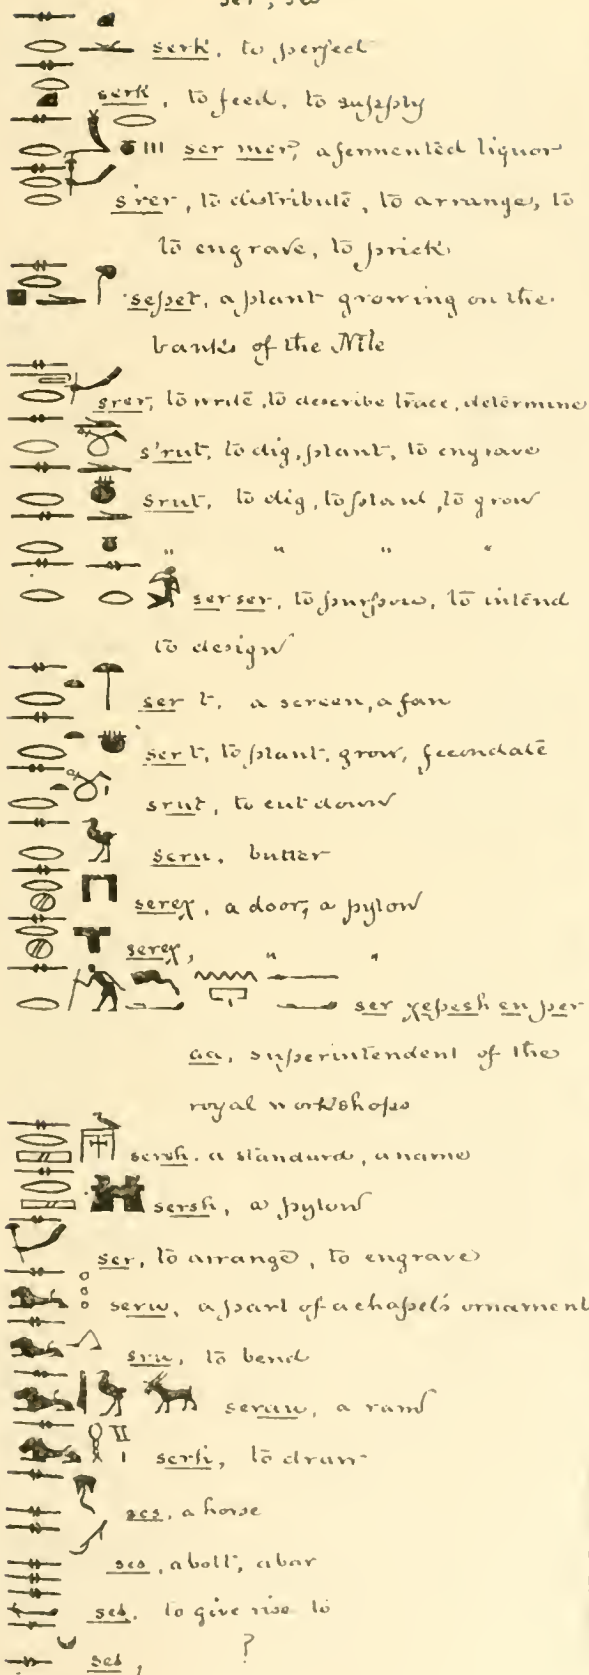 serk, to perfect
serk, to feed, to supply
ser mer, a fermented liquor
s'rer, to distribute, to arrange, to
to engrave, to prick
sepet, a plant growing on the
banks of the Nile
srer, to write, to describe trace, determine
s'rut, to dig, plant, to engrave
srut, to dig, to plant, to grow
" " " "
serser, to purpow, to intend
to design
ser t, a screen, a fan
ser t, to plant, grow, fecondate
srut, to cut down
seru, butter
sereχ, a door, a pylon
serex, " "
ser χepesh en per
aa, superintendent of the
royal workshops
sersh. a standard, a name
sersh, a pylon
ser, to arrange, to engrave
seru, a part of a chapel's ornament
sru, to bend
serau, a ram
serfi, to draw
ses, a horse
ses, a bolt, a bar
ses, to give rise to
ses, ?